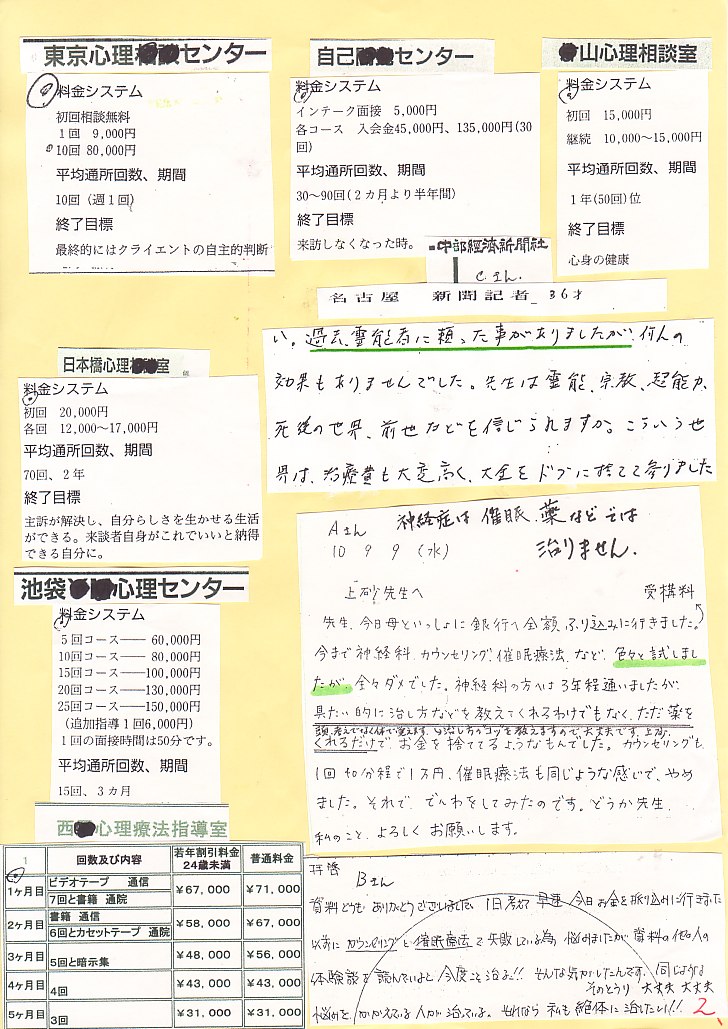 東京心理 センター
料金システム
初回相談無料
1回 9,000円
10回 80,000円
平均通所回数、期間
10回(週1回)
終了目標
最終的にはクライエントの自主的判断
自己 センター
料金システム
インテーク面接 5,000円
各コース 入会金45,000円、135,000円(30
回)
平均通所回数、期間
30〜90回(2カ月より半年間)
終了目標
来訪しなくなった時。
山心理相談室
料金システム
初回 15,000円
継続 10,000〜15,000円
平均通所回数、期間
1年(50回)位
終了目標
心身の健康
中部経済新聞社
Cさん.
名古屋 新聞記者 36才
い。過去、霊能者に頼った事がありましたが、何んの
効果もありませんでした。先生は霊能、宗教、超能力、
死後の世界、前世などを信じられますか。こういう世
界は、治療費も大変高く、大金をドブに捨てて参りました
日本橋心理 室
料金システム
初回 20,000円
各回 12,000〜17,000円
平均通所回数、期間
70回、2年
終了目標
主訴が解決し、自分らしさを生かせる生活
ができる。来談者自身がこれでいいと納得
できる自分に。
池袋 心理センター
料金システム
5回コース―― 60,000円
10回コース―― 80,000円
15回コース――100,000円
20回コース――130,000円
25回コース――150,000円
(追加指導1回6,000円)
1回の面接時間は50分です。
平均通所回数、期間
15回、3カ月
Aさん 神経症は催眠、薬などでは
10 9 9 (水) 治りません.
上砂先生へ 受構料
先生、今日母といっしょに銀行へ全額ふり込みに行きました。
今まで神経科、カウンセリング、催眠療法、など、色々と試しまし
たが、全々ダメでした。神経科の方へは3年程通いましたが、
具たい的に治し方などを教えてくれるわけでもなく、ただ薬を
くれるだけで、お金を捨ててるようなもんでした。カウンセリングも、
1回40分程で1万円、催眠療法も同じような感じで、やめ
ました。それで、でんわをしてみたのです。どうか先生、
私のこと、よろしくお願いします。
西 心理療法指導室
1 回数及び内容 若年割引料金 24歳未満 普通料金
1ヶ月目 ビデオテープ 通信 ¥67,000 ¥71,000
7回と書籍 通院
2ヶ月目 書籍 通信 ¥58,000 ¥67,000
6回とカセットテープ 通院
3ヶ月目 5回と暗示集 ¥48,000 ¥56,000
4ヶ月目 4回 ¥43,000 ¥43,000
5ヶ月目 3回 ¥31,000 ¥31,000
拝啓 Bさん
資料どうもありがとうございました、1日考えて早速今日お金を振り込みに行きました
以前にカウンセリングと催眠療法で失敗している為、悩みましたが資料の他の人の
体験談を読んでいると今度こそ治る!! そんな気がしたんです。同じような
そのとうり 大丈夫 大丈夫
悩みをかかえている人が治っている。それなら私も絶体に治したい!! 2